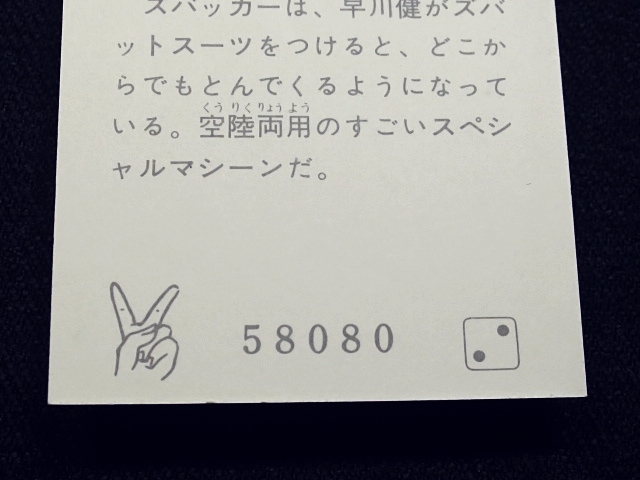 ズバッカーは、早川健がズバ
ットスーツをつけると、どこか
らでもとんでくるようになって
くう りくりょう よう
いる。空陸両用のすごいスペシ
ャルマシーンだ。
58080